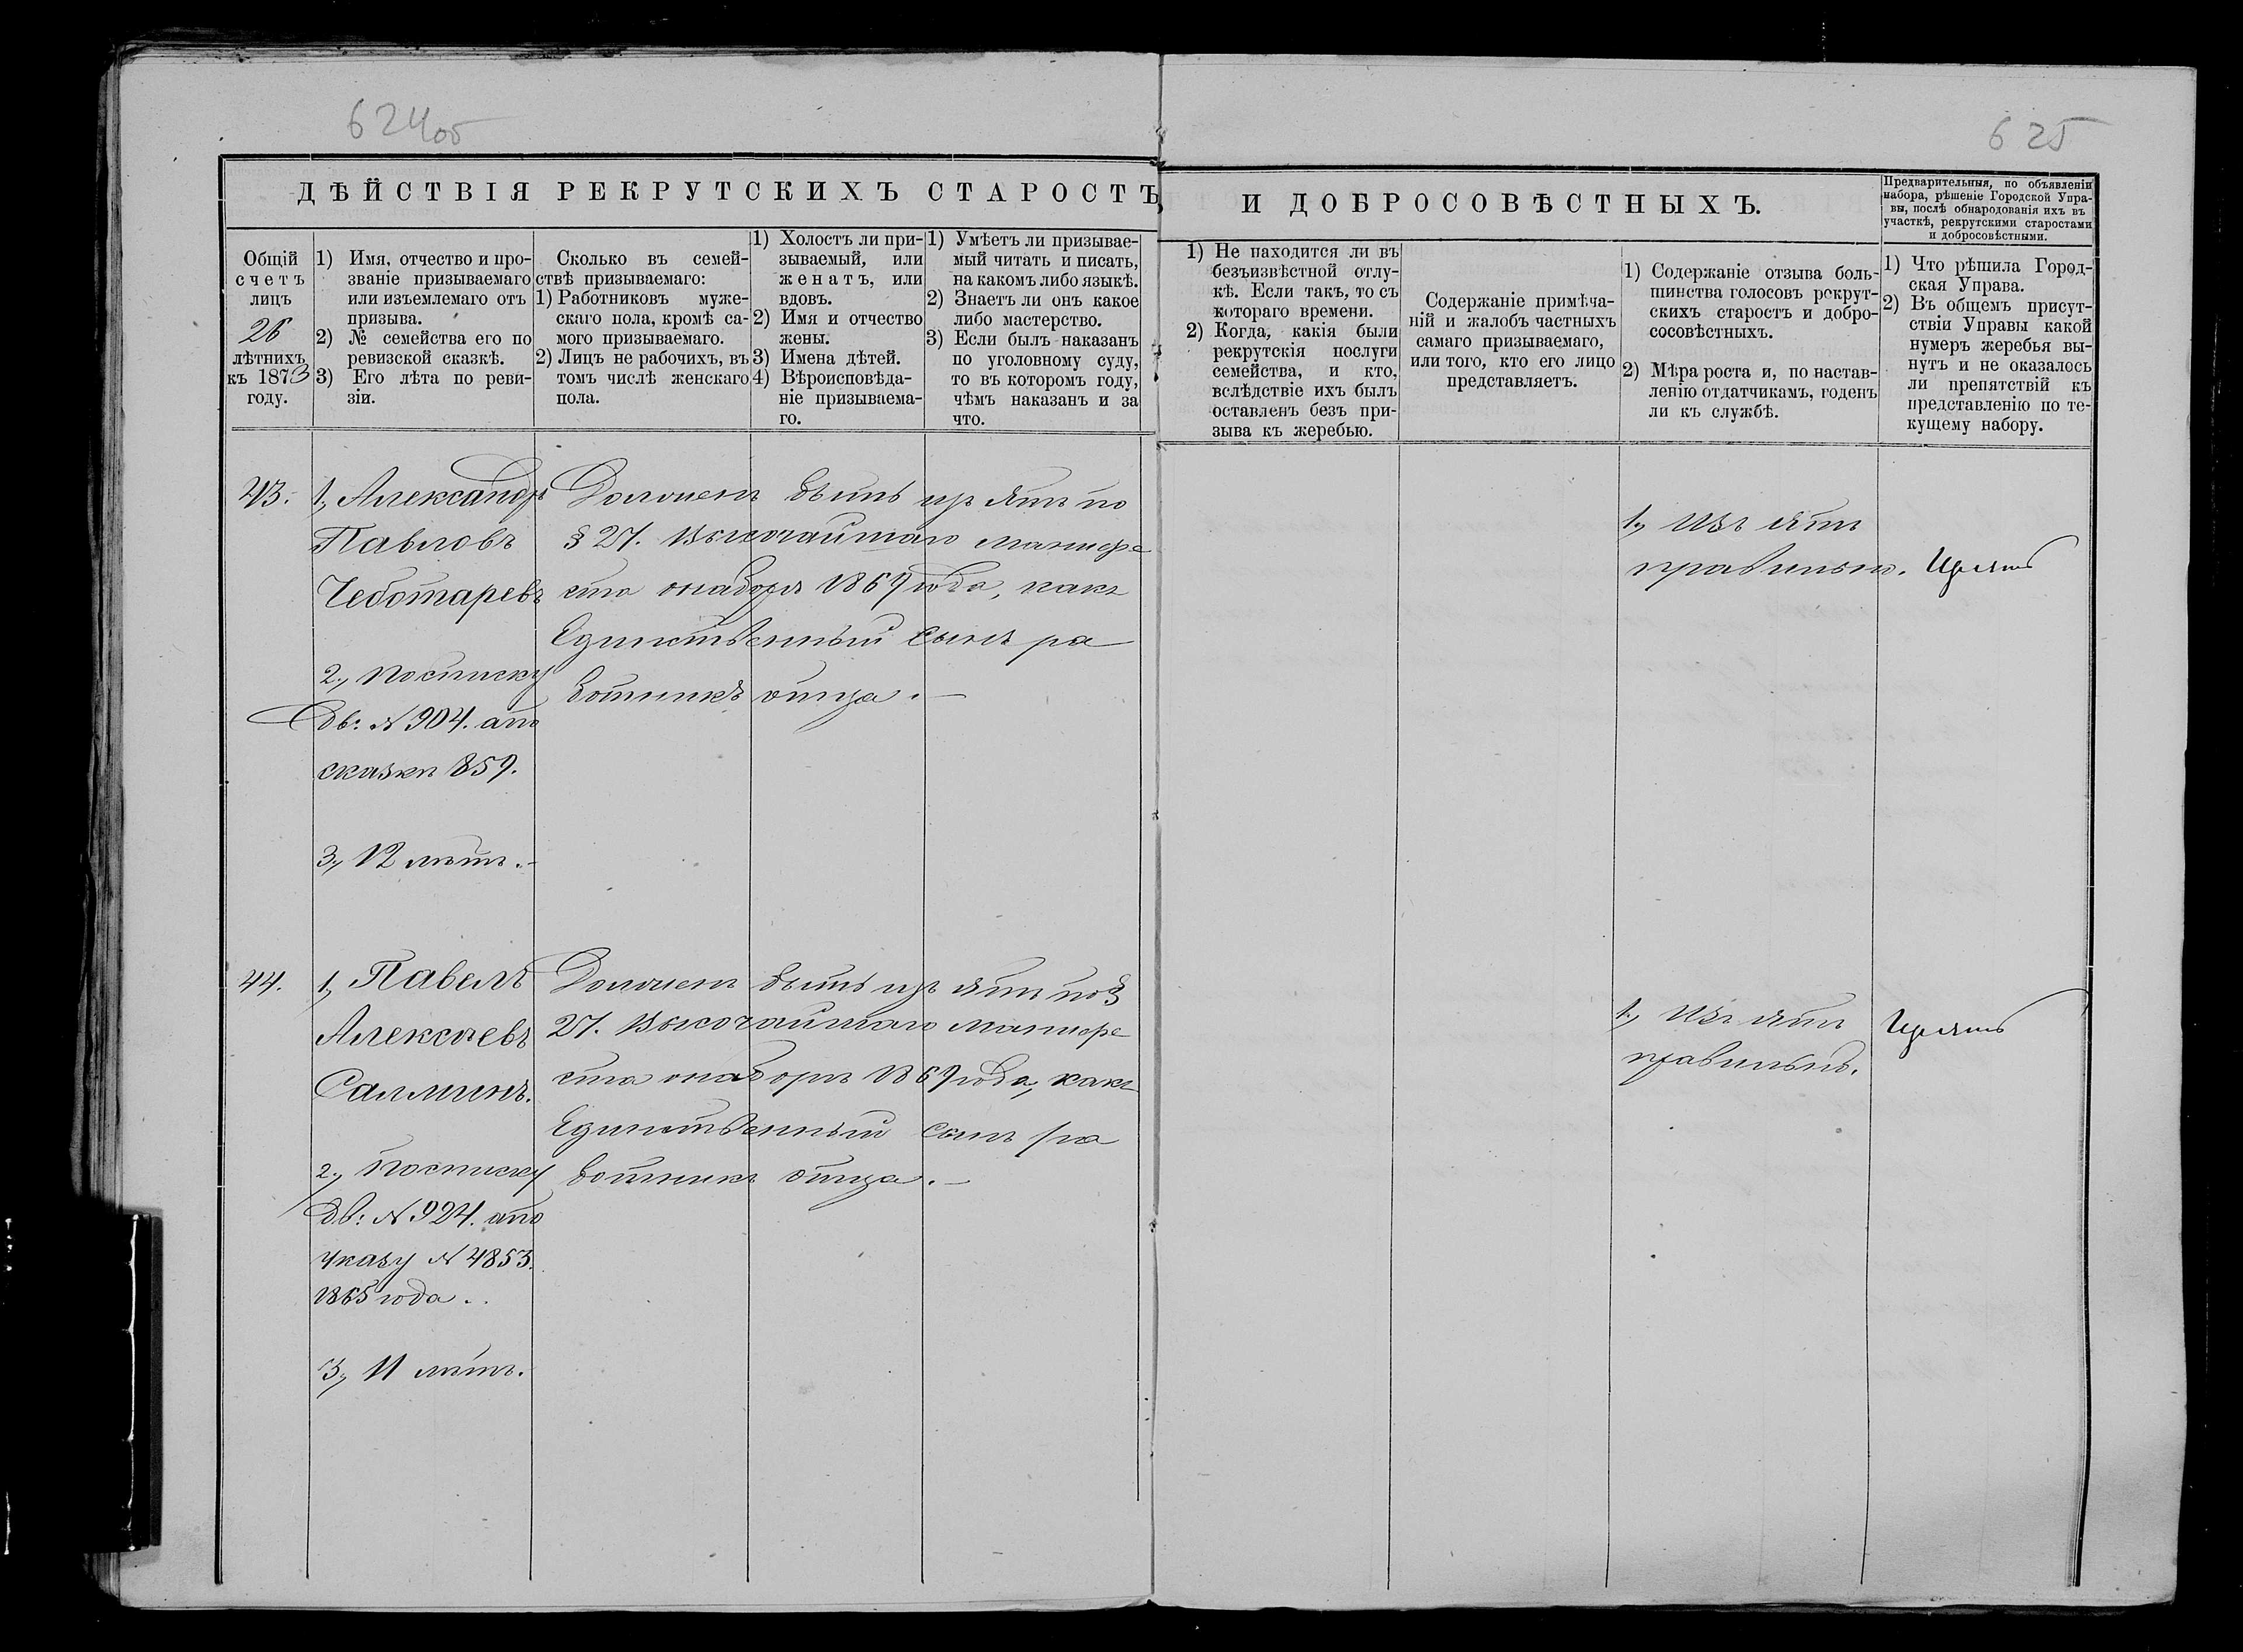 624об
625
ДѢЙСТВІЯ РЕКРУТСКИХЪ СТАРОСТЪ
И ДОБРОСОВѢСТНЫХЪ.
Предварительныя, по объявленіи
набора, рѣшеніе Городской Упра-
вы, послѣ обнародованія ихъ въ
участкѣ, рекрутскими старостами
и добросовѣстными.
Общій
счетъ
лицъ
26
лѣтнихъ
къ 1873
году.
1) Имя, отчество и про-
званіе призываемаго
или изъемлемаго отъ
призыва.
2) № семейства его по
ревизской сказкѣ.
3) Его лѣта по реви-
зіи.
Сколько въ семей-
ствѣ призываемаго:
1) Работниковъ муже-
скаго пола, кромѣ са-
мого призываемаго.
2) Лицъ не рабочихъ, въ
томъ числѣ женскаго
пола.
1) Холостъ ли при-
зываемый, или
женатъ, или
вдовъ.
2) Имя и отчество
жены.
3) Имена дѣтей.
4) Вѣроисповѣда-
ніе призываема-
го.
1) Умѣетъ ли призывае-
мый читать и писать,
на какомъ либо языкѣ.
2) Знаетъ ли онъ какое
либо мастерство.
3) Если былъ наказанъ
по уголовному суду,
то въ которомъ году,
чѣмъ наказанъ и за
что.
1) Не находится ли въ
безъизвѣстной отлу-
кѣ. Если такъ, то съ
котораго времени.
2) Когда, какія были
рекрутскія послуги
семейства, и кто,
вслѣдствіе ихъ былъ
оставленъ безъ при-
зыва къ жеребью.
Содержаніе примѣча-
ній и жалобъ частныхъ
самаго призываемаго,
или того, кто его лицо
представляетъ.
1) Содержаніе отзыва боль-
шинства голосовъ рекрут-
скихъ старостъ и добро-
сосовѣстныхъ.
2) Мѣра роста и, по настав-
ленію отдатчикамъ, годенъ
ли къ службѣ.
1) Что рѣшила Город-
ская Управа.
2) Въ общемъ присут-
ствіи Управы какой
нумеръ жеребья вы-
нутъ и не оказалось
ли препятствій къ
представленію по те-
кущему набору.
43.
1, Александръ
Павловъ
Чеботаревъ
2, по списку
дв: № 904. а по
сказкѣ 859.
3, 12 лѣтъ.
Должен быть изъятъ по
§ 27. Высочайшаго манифе
ста о наборѣ 1869 года, какъ
Единственный сынъ ра
ботникъ отца.
1, Изъятъ
правильно.
Изъятъ
44.
1, Павелъ
Алексѣевъ
Салминъ.
2, по списку
дв: № 924. а по
указу № 4853.
1865 года.
3, 11 лѣтъ.
Должен быть изъятъ по §
27. Высочайшаго манифе
ста о наборѣ 1869 года, какъ
Единственный сынъ ра
ботникъ отца.
1, Изъятъ
правильно.
Изъятъ